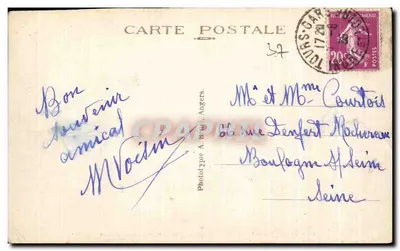 CARTE POSTALE
TOURS-GARE
17 20
POSTES
20
37
Bon
souvenir
amical
M Voisin
Mr et Mme Courtois
66 rue Denfert Rochereau
Boulogne s/ Seine
Seine
Phototype A. Bruel, Angers.